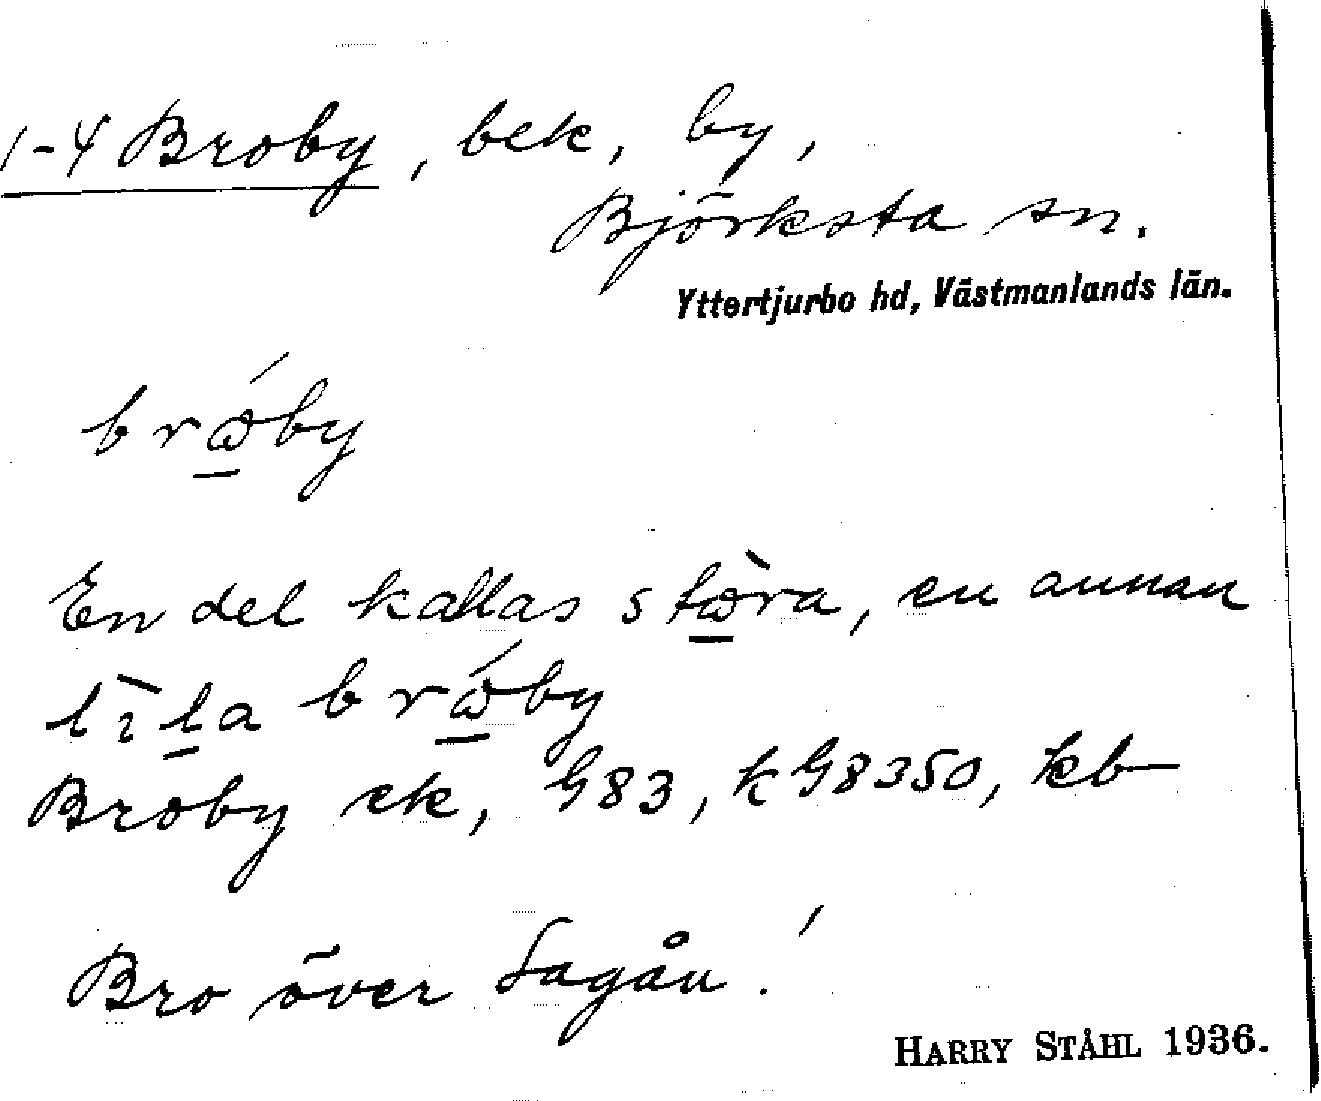 1-4 Broby, bek, by,
Björksta sn.
Yttertjurbo hd, Västmanlands län.
brώ̲by
En del kallas stὼ̲ra, en annan
lìl̲a brώ̲by
Broby ek, G83, kG8350, kb
Bro över Sagån!
HARRY STÅHL 1936.